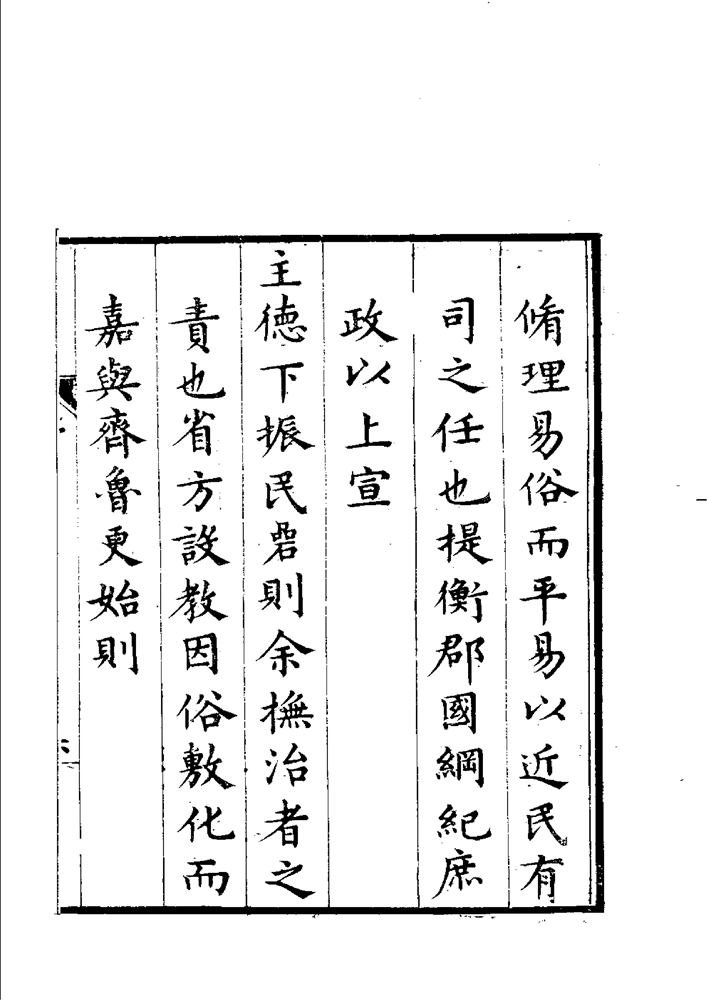 脩理易俗而平易以近民有
司之任也提衡郡國綱紀庶
政以上宣
主德下振民碞則余撫治者之
責也省方設教因俗敷化而
嘉與齊魯更始則